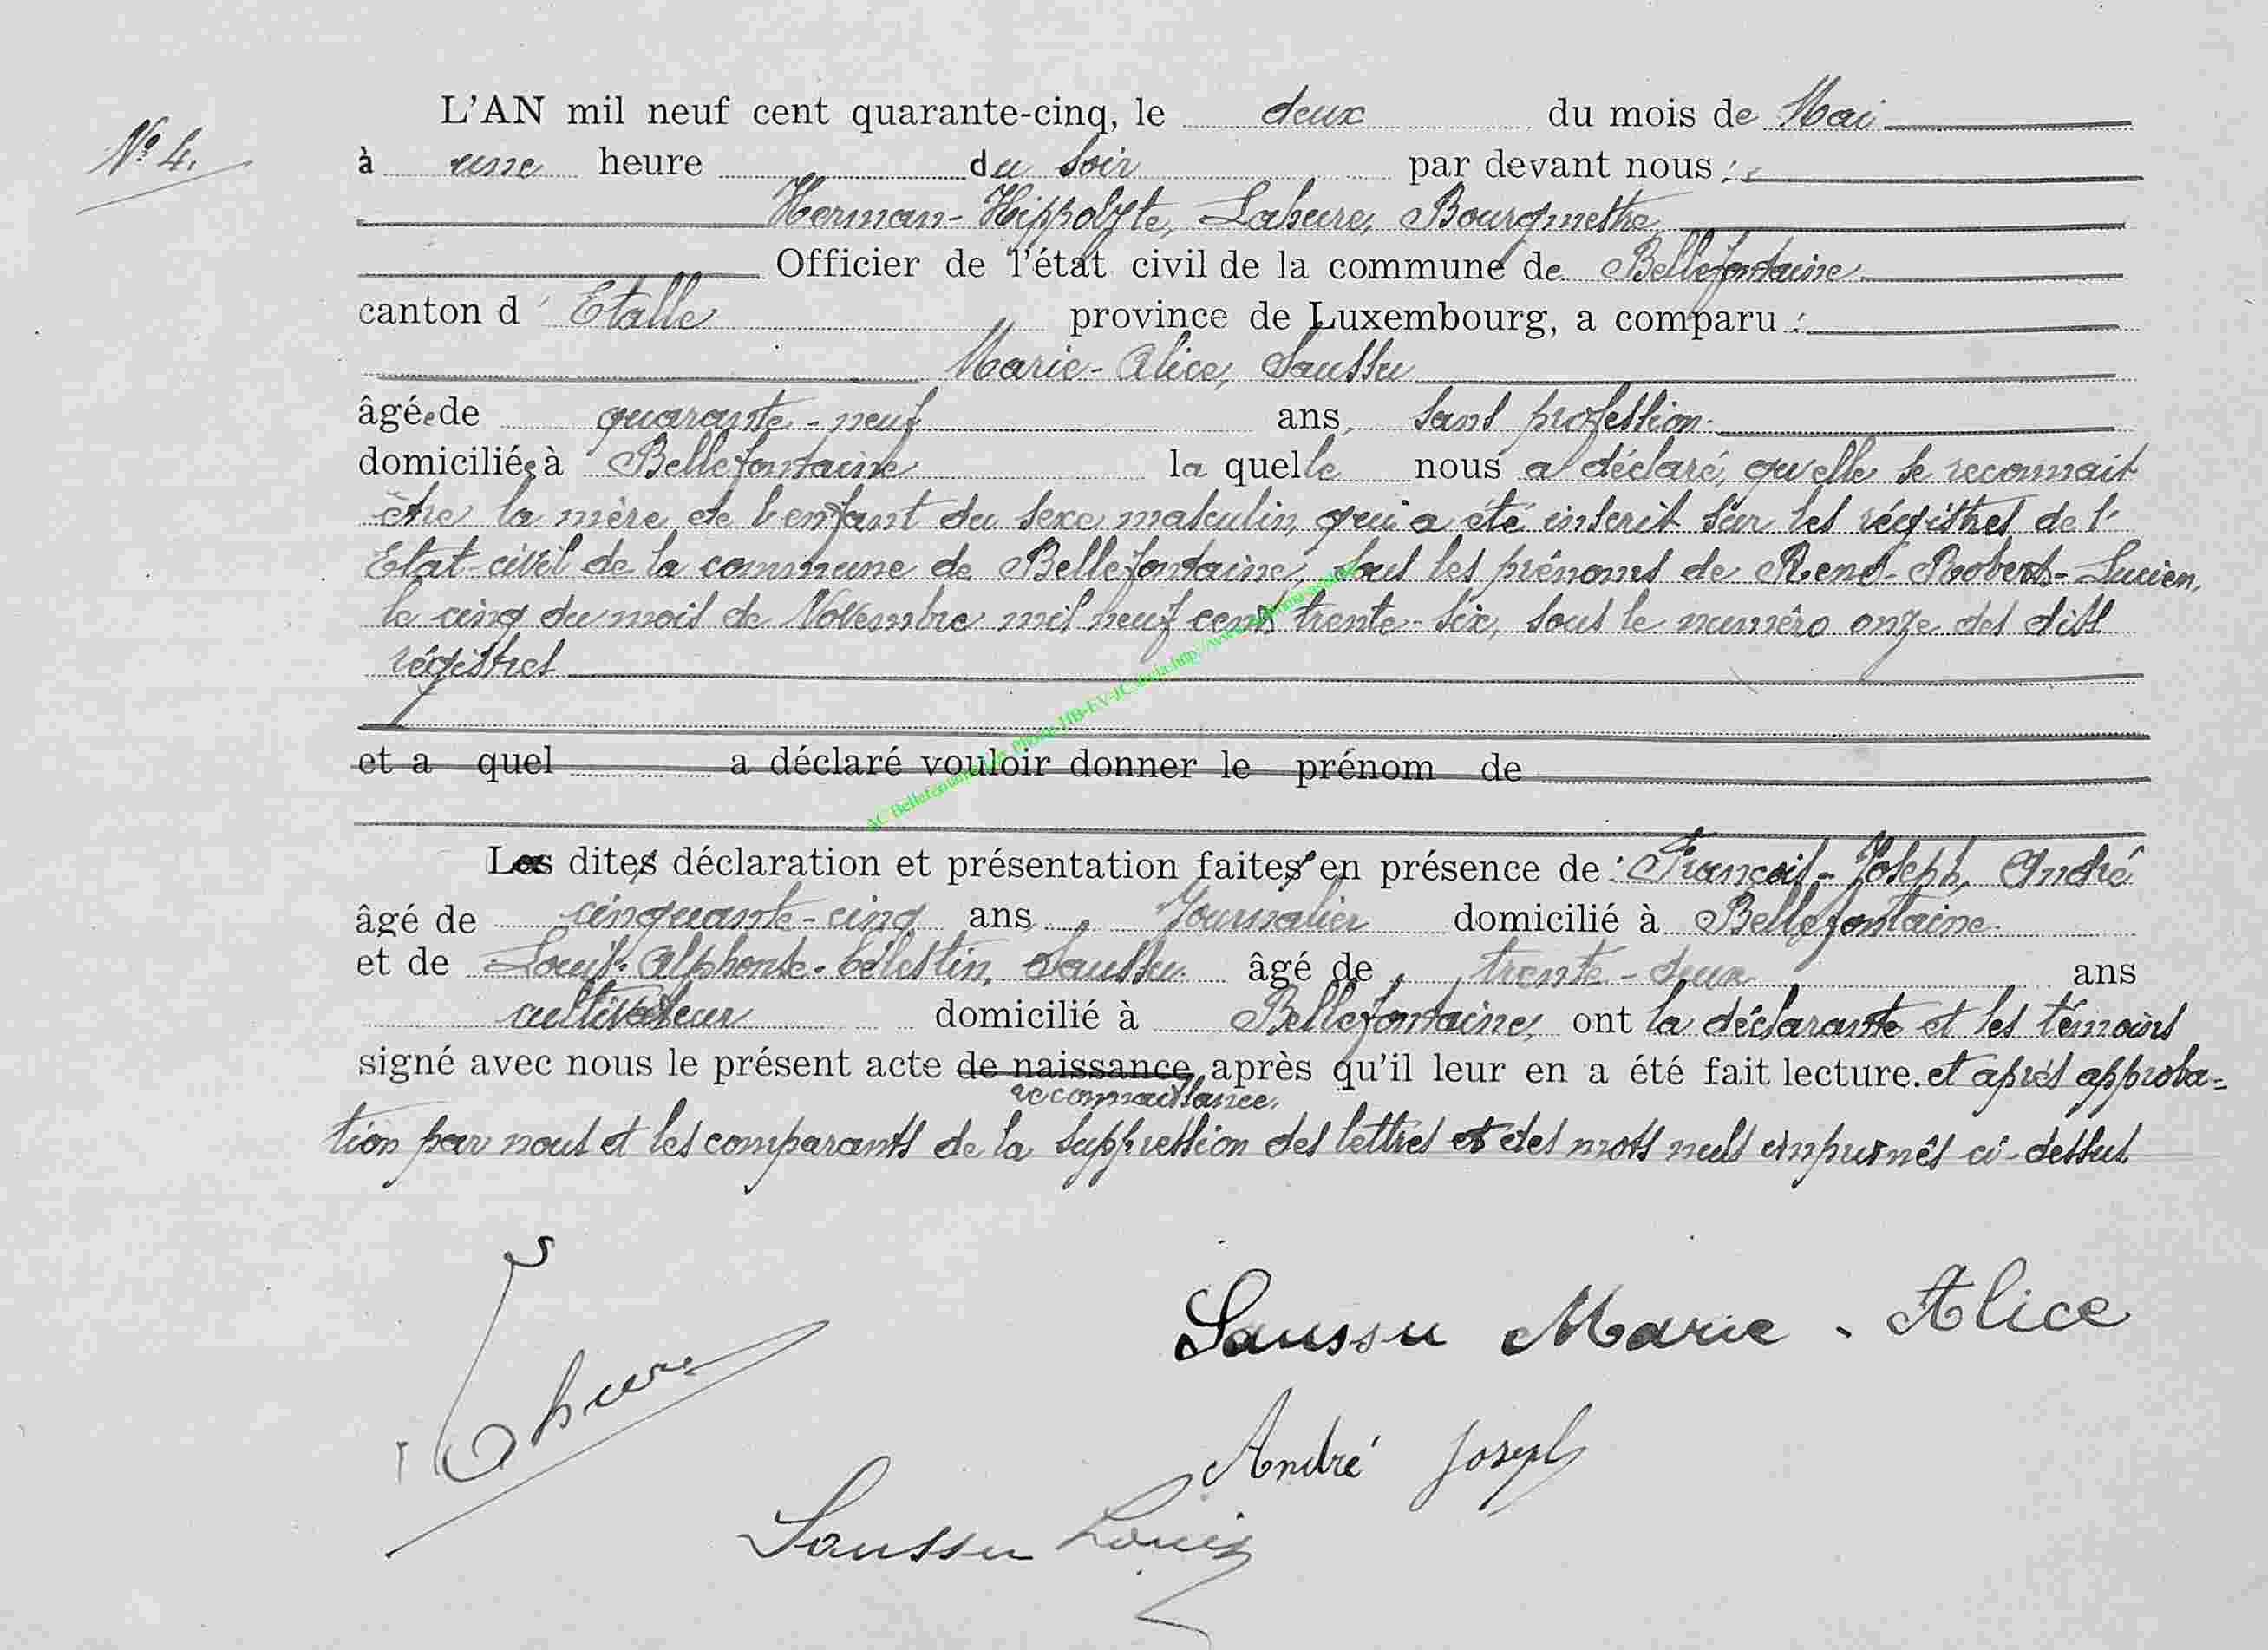 N° 4.
L'AN mil neuf cent quarante-cinq, le deux du mois de Mai
à une heure du soir par devant nous :
Herman-Hippolyte, Laheure, Bourgmestre
Officier de l'état civil de la commune de Bellefontaine
canton d' Etalle province de Luxembourg, a comparu :
Marie-Alice, Saussu
âgée de quarante-neuf ans, sans profession.
domiciliée à Bellefontaine la quelle nous a déclaré, qu'elle se reconnait
être la mère de l'enfant du sexe masculin, qui a été inscrit sur les régistres de l'
Etat-civil de la commune de Bellefontaine, sous les prénoms de René-Robert-Lucien,
le cinq du mois de Novembre mil neuf cent trente-six, sous le numéro onze des dits
régistres
et a quel a déclaré vouloir donner le prénom de
Les dites déclaration et présentation faites en présence de : François-Joseph, André
âgé de cinquante-cinq ans Journalier domicilié à Bellefontaine
et de Louis-Alphonse-Célestin, Saussu. âgé de trente-deux ans
cultivateur domicilié à Bellefontaine, ont la déclarante et les témoins
signé avec nous le présent acte de naissance après qu'il leur en a été fait lecture. et après approba=
reconnaissance.
tion par nous et les comparants de la suppression des lettres et des mots nuls imprimés ci-dessus
Saussu Marie-Alice
André Joseph
Saussu Louis
AC Bellefontaine